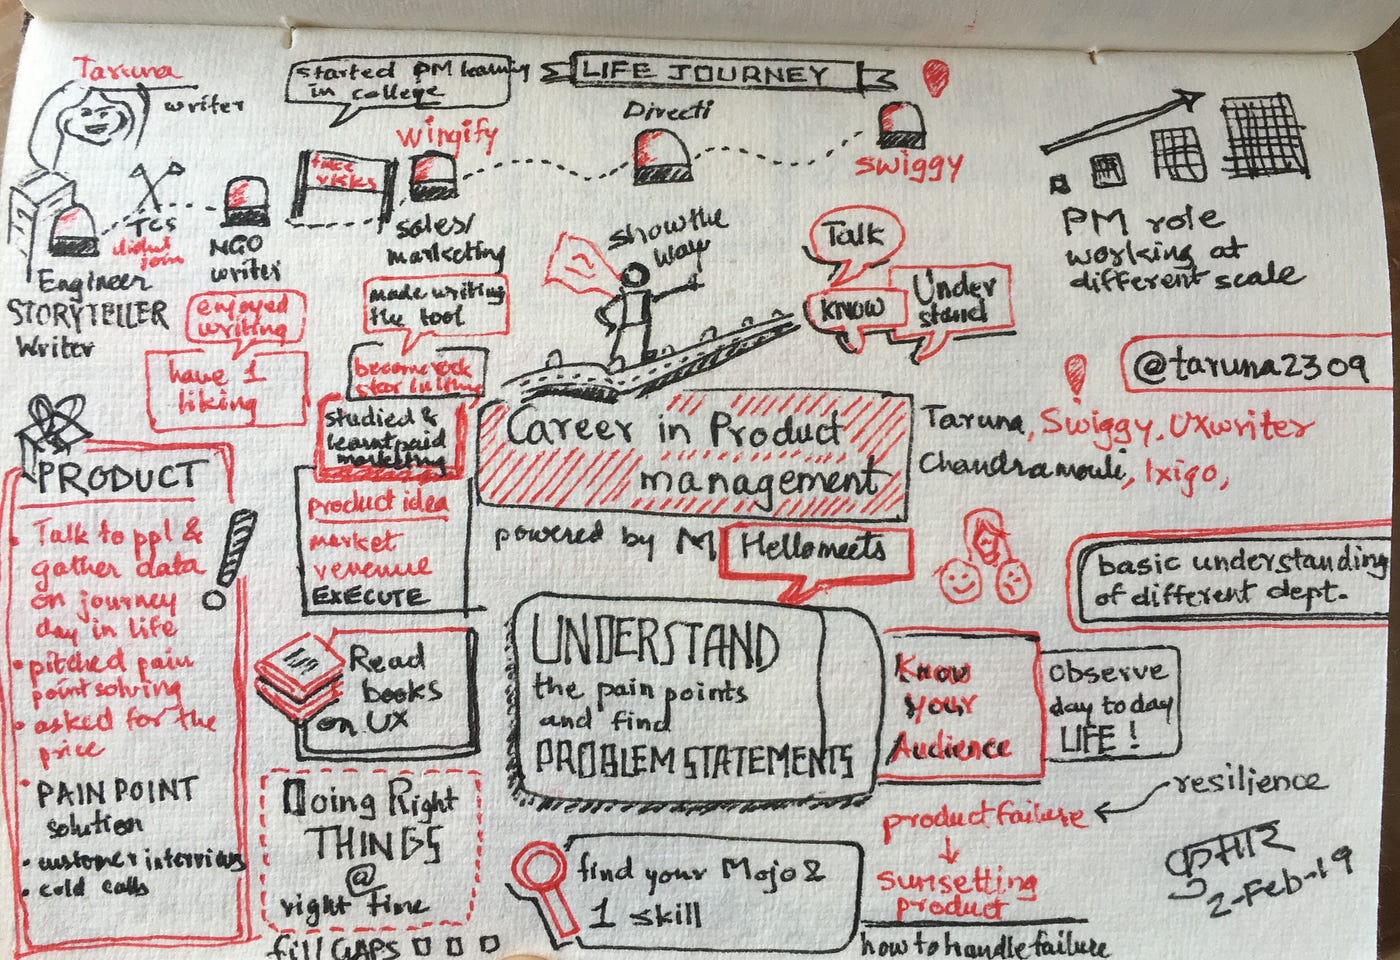 Taruna
writer
started PM learning
in college
LIFE JOURNEY
Directi
wingify
swiggy
take
risks
TCS
didn't
join
NGO
writer
Engineer
STORYTELLER
Writer
sales/
marketing
show the
way
Talk
KNOW
Under
stand
PM role
working at
different scale
enjoyed
writing
have 1
liking
made writing
the tool
become rock
star in
studied &
learnt paid
marketing
@taruna2309
Career in Product
management
Taruna, Swiggy, UXwriter
Chandramouli, Ixigo,
powered by
Hellomeets
PRODUCT
Talk to ppl &
gather data
on journey
day in life
• pitched pain
point solving
• asked for the
price
• PAIN POINT
solution
• customer interviews
• cold calls
product idea
market
revenue
EXECUTE
Read
books
on UX
Doing Right
THINGS
@
right time
fill GAPS
UNDERSTAND
the pain points
and find
PROBLEM STATEMENTS
basic understanding
of different dept.
Know
your
Audience
Observe
day to day
LIFE!
find your Mojo &
1 skill
resilience
product failure
sunsetting
product
how to handle failure
2-Feb-19